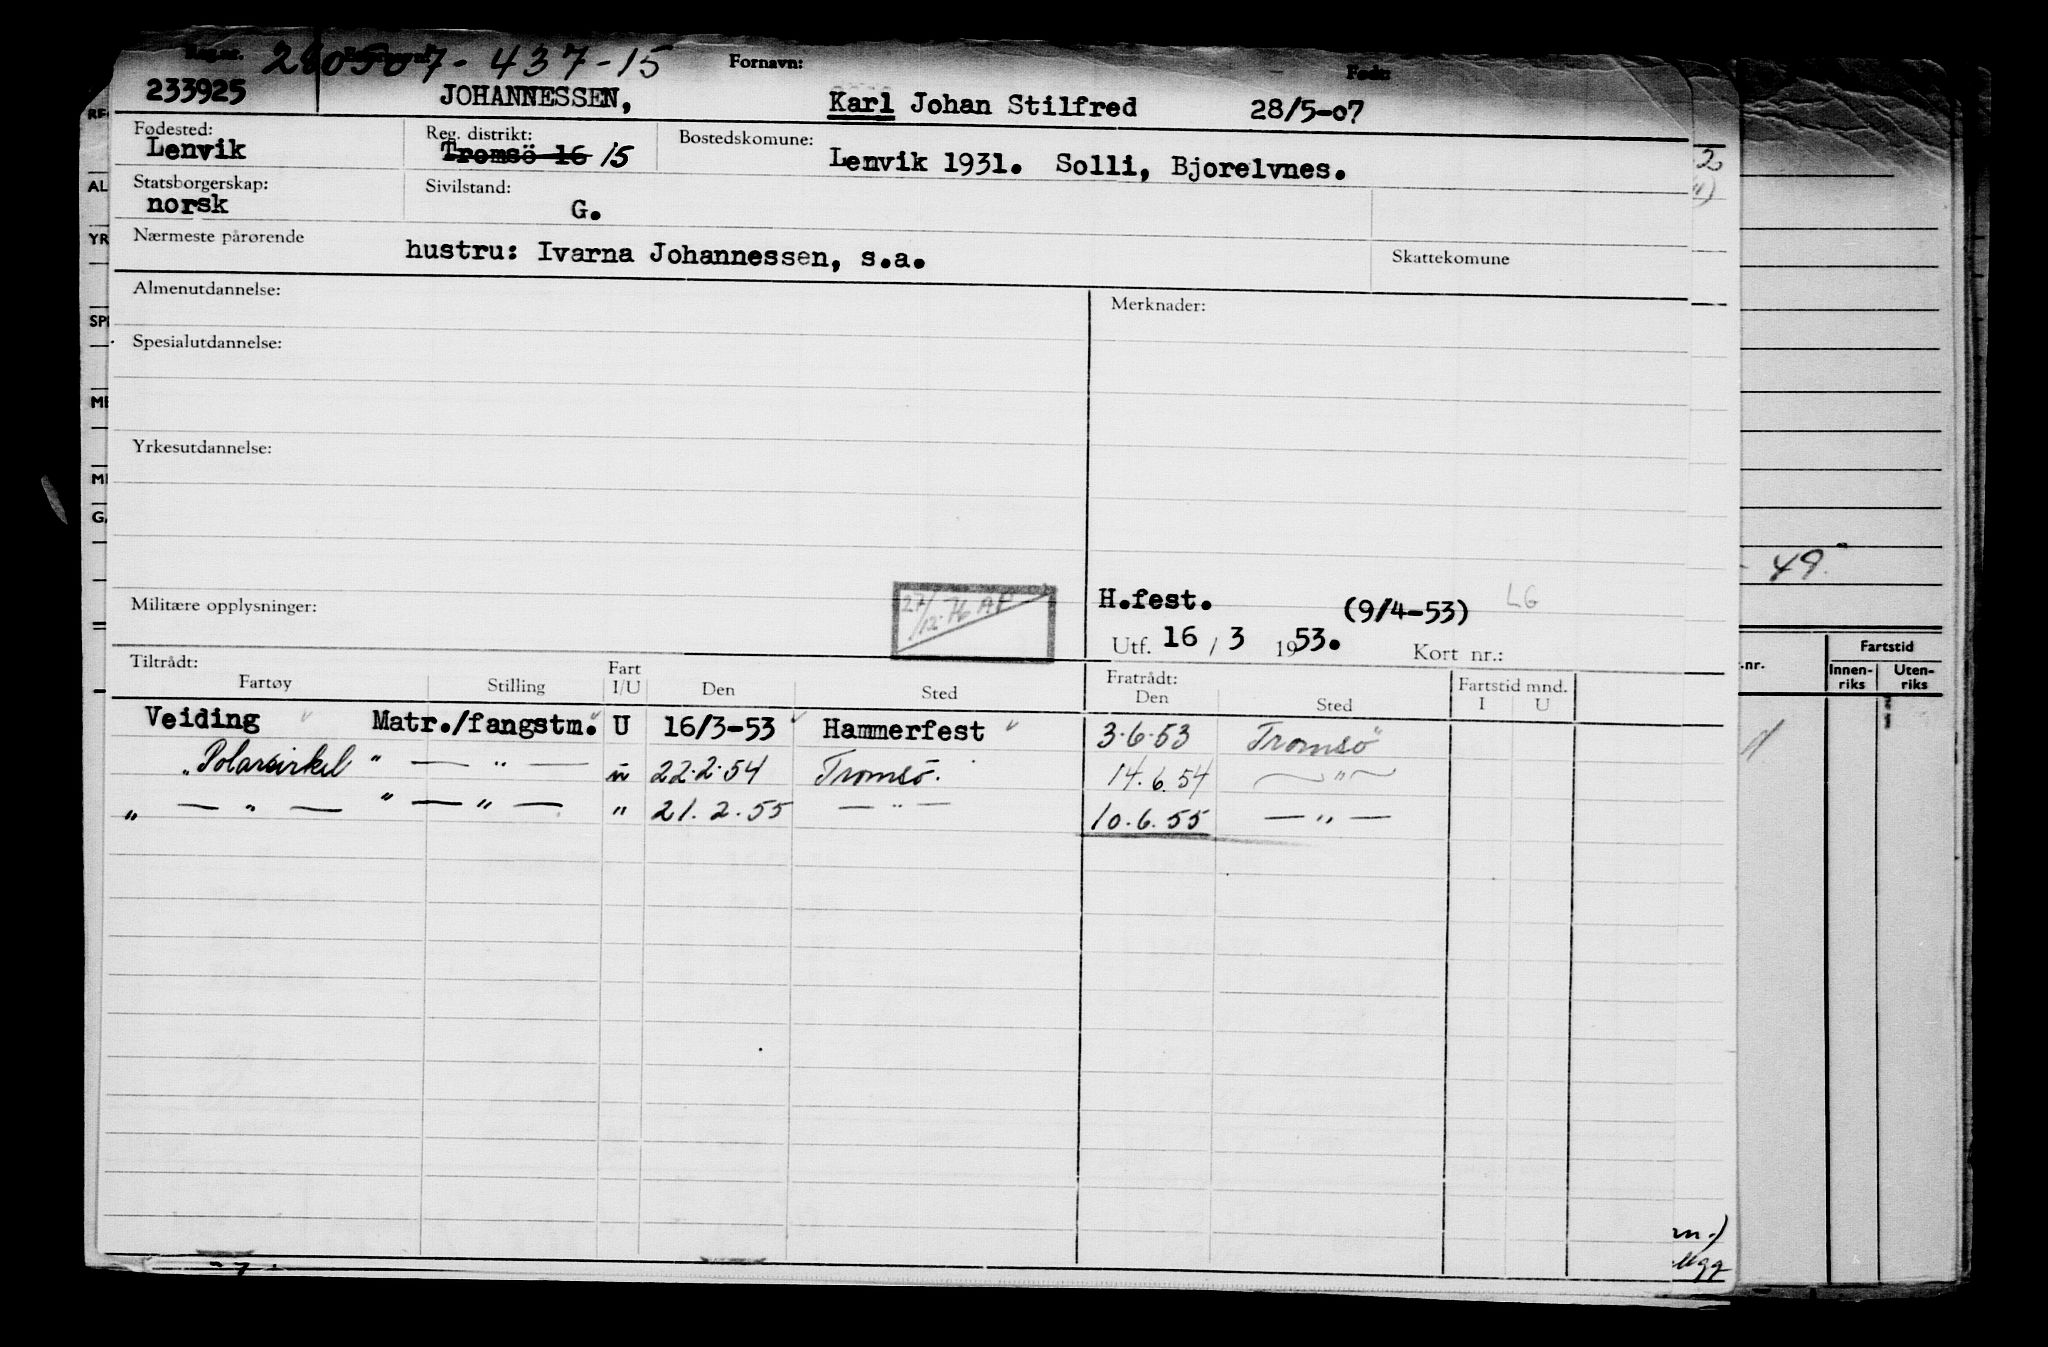 Reg.nr. 280507-437-15 Fornavn: Født:
233925 JOHANNESSEN, Karl Johan Stilfred 28/5-07
Fødested: Reg. distrikt: Bostedskomune:
Lenvik Tromsö 16 15 Lenvik 1931. Solli, Bjorelvnes.
Statsborgerskap: Sivilstand:
norsk G.
Nærmeste pårørende hustru: Ivarna Johannessen, s.a. Skattekomune
Almenutdannelse: Merknader:
Spesialutdannelse:
Yrkesutdannelse:
Militære opplysninger: 27/12-76 AF H.fest. (9/4-53) LG
Utf. 16 / 3 1953. Kort nr.:
Tiltrådt: Fratrådt:
Fartøy Stilling Fart I/U Den Sted Den Sted Fartstid mnd. I U
Veiding Matr./fangstm. U 16/3-53 Hammerfest 3.6.53 Tromsö
"Polarsirkel " — " — " 22.2.54 Tromsö. 14.6.54 — " —
" — " — " — " — " 21.2.55 — " — 10.6.55 — " —
2
49.
.nr. Fartstid
Innen-riks Uten-riks